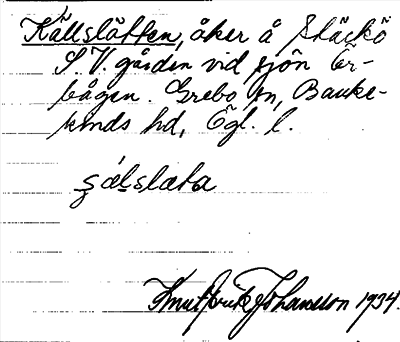 Källslätten, åker å Stäckö
S.V. gården vid sjön Ör-
bågen. Grebo sn, Banke-
kinds hd, Ögl. l.
Knut Johansson 1934.